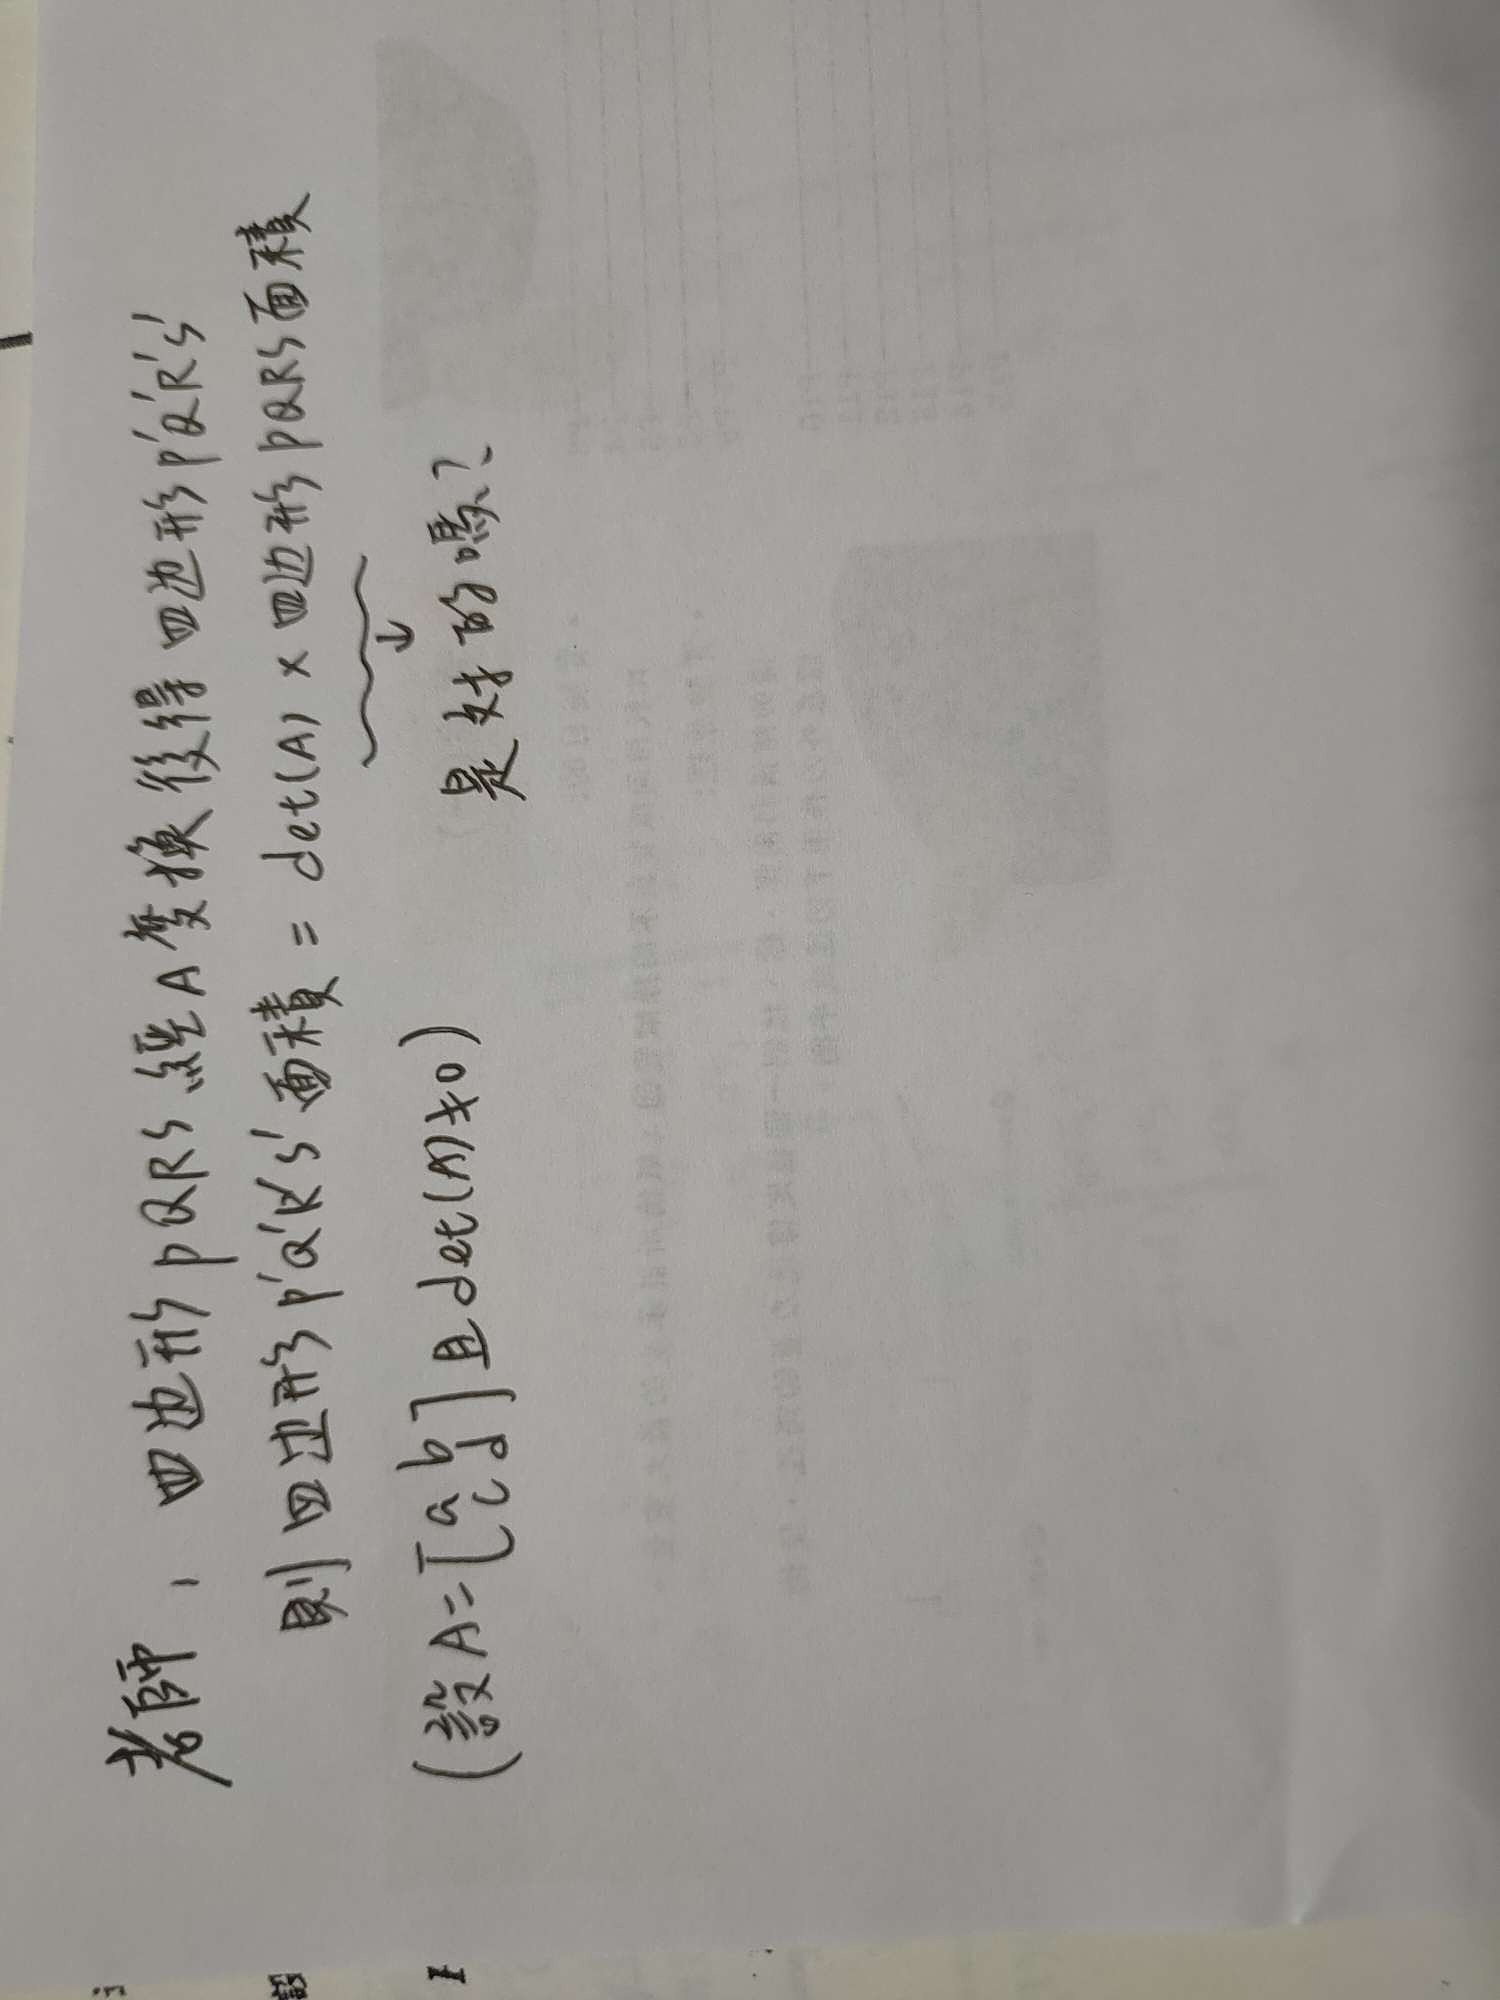 老師，四边形PQRS經A變換後得四边形P'Q'R'S'
則四边形P'Q'R'S'面積=det(A)×四边形PQRS面積
↓
是对的嗎?
(設A=[a b
c d]且det(A)≠0)